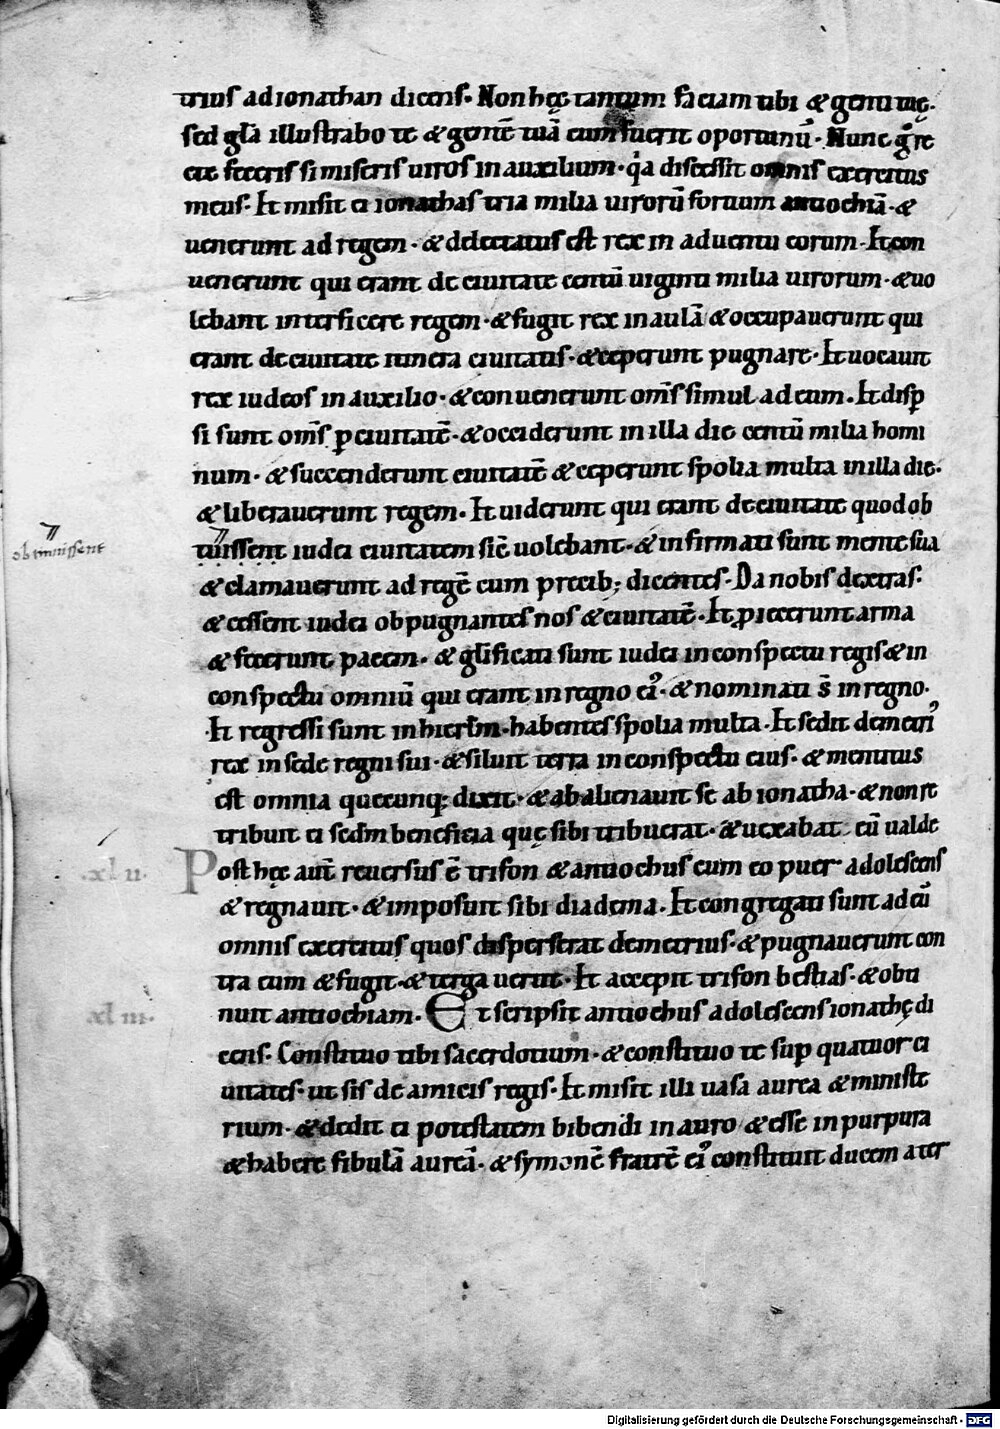 trius ad ionathan dicens. Non hęc tantum faciam tibi & genti tuę.
sed gl̅a illustrabo te & gente̅ tua̅ cum fuerit oportunu̅. Nunc g̊ re
cte feceris si miseris uiros in auxilium. q̇a discessit omnis exercitus
meus. Et misit ei ionathas tria milia uiroru̅ fortium antiochia̅. &
uenerunt ad regem. & delectatus est rex in aduentu eorum. Et con
uenerunt qui erant de ciuitate centu̅ uiginti milia uirorum. & uo
lebant interficere regem. & fugit rex in aula̅ & occupauerunt qui
erant de ciuitate itinera ciuitatis. & ceperunt pugnare. Et uocauit
rex iudeos in auxilio. & conuenerunt om̅s simul ad eum. Et disp̲
si sunt om̅s p̲ ciuitate̅. & occiderunt in illa die centu̅ milia homi
num. & succenderunt ciuitate̅ & ceperunt spolia multa in illa die.
& liberauerunt regem. Et uiderunt qui erant de ciuitate quod ob
tuissent iudei ciuitatem sic̅ uolebant. & infirmati sunt mente sua
obtinuissent
& clamauerunt ad rege̅ cum precib; dicentes. Da nobis dextras.
& cessent iudei obpugnantes nos & ciuitate̅. Et piecerunt arma
& fecerunt pacem. & gl̅ificati sunt iudei in conspectu regis & in
conspectu omniu̅ qui erant in regno ei᾽. & nominati s̅ in regno.
Et regressi sunt in hierl̅m. habentes spolia multa. Et sedit demetri᾽
rex in sede regni sui. & siluit terra in conspectu eius. & mentitus
est omnia quecunq; dixit. & abalienauit se ab ionatha. & non re
tribuit ei sedm̅ beneficia quę sibi tribuerat. & uexabat eu̅ ualde
.xl ii.
Post hęc aut̅ reuersus e̅ trifon & antiochus cum eo puer adolescens
& regnauit. & imposuit sibi diadema. Et congregati sunt ad eu̅
omnis exercitus quos disperserat demetrius. & pugnauerunt con
tra eum & fugit. & terga uertit. Et accepit trifon bestias. & obti
xl iii.
nuit antiochiam. Et scripsit antiochus adolescens ionathę di
cens. Constituo tibi sacerdotium. & constituo te sup̲ quatuor ci
uitates. ut sis de amicis regis. Et misit illi uasa aurea & ministe
rium. & dedit ei potestatem bibendi in auro & esse in purpura
& habere fibula̅ aurea̅. & symone̅ fratre̅ ei᾽ constituit ducem a ter
Digitalisierung gefördert durch die Deutsche Forschungsgemeinschaft - DFG